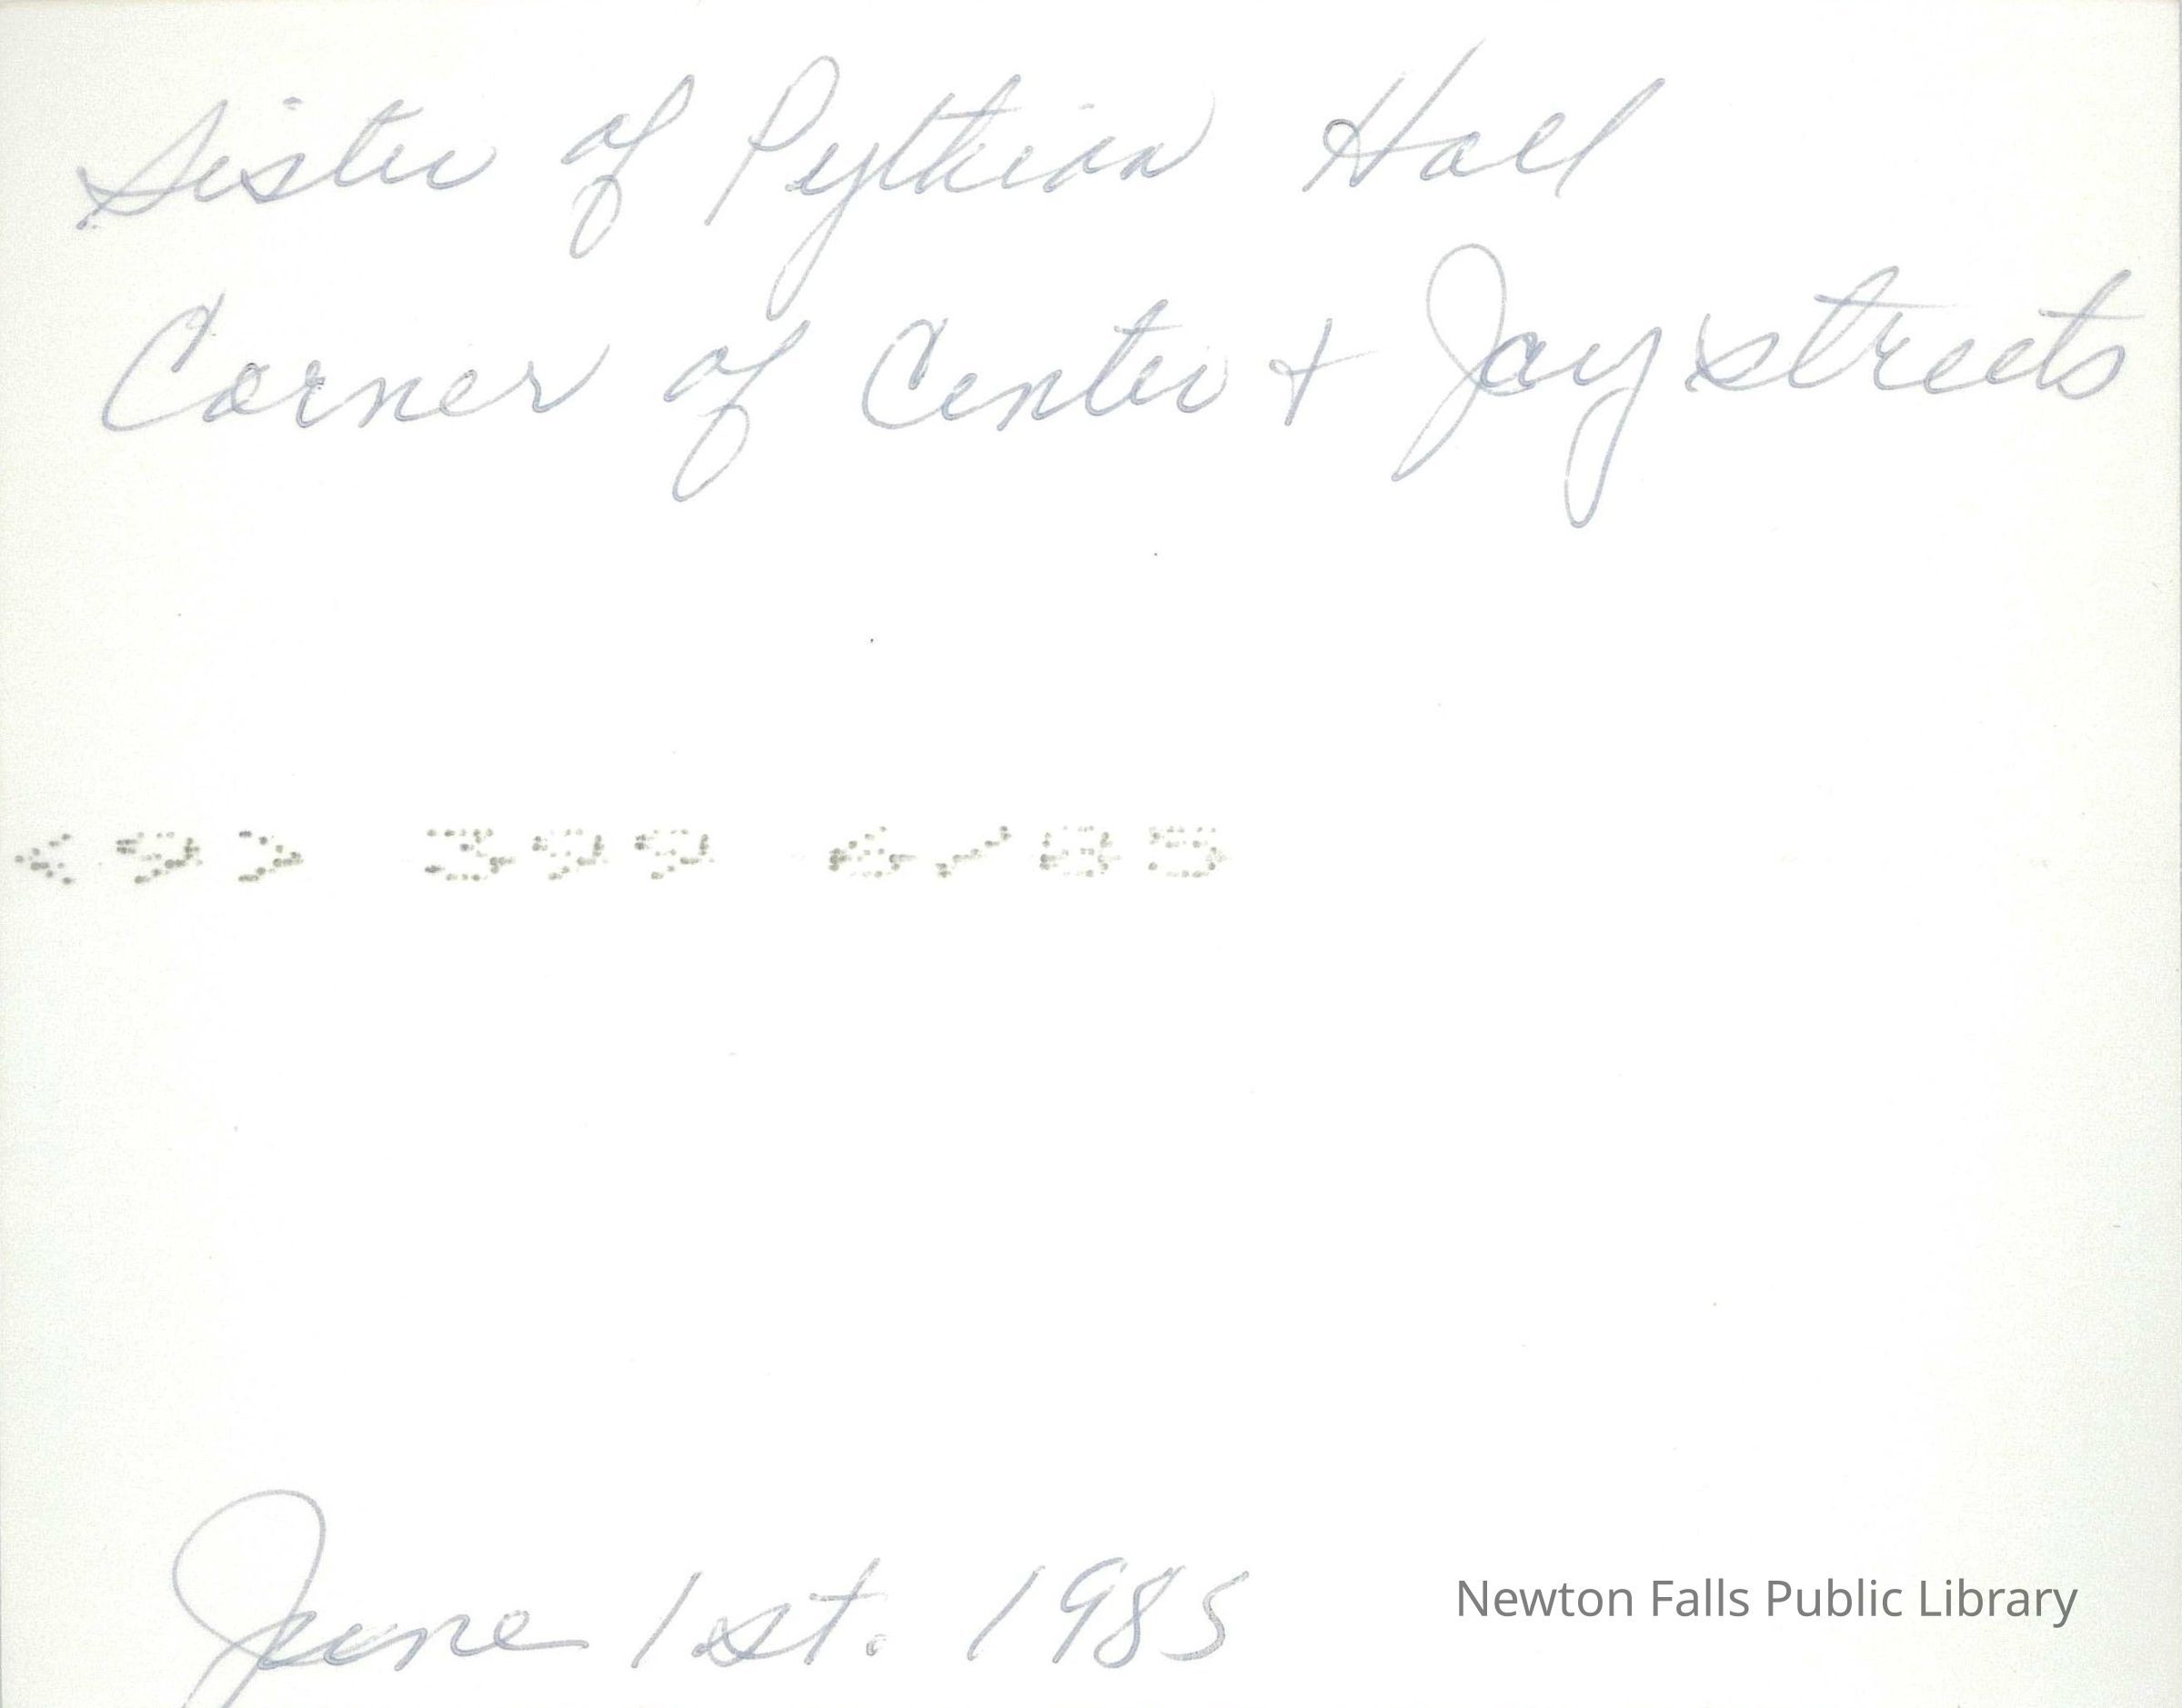 Sister of Pythian Hall
Corner of Center + Jay streets
<9> 399 6/85
June 1st. 1985
Newton Falls Public Library